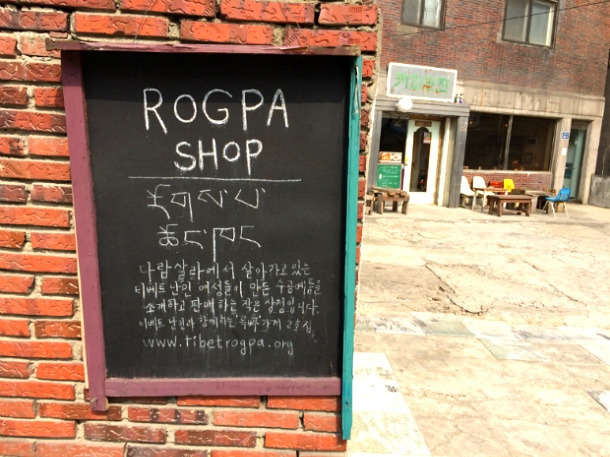 ROGPA
SHOP
རོགས་པ་
ཚོང་ཁང་
다람살라에서 살아가고 있는
티베트 난민 여성들이 만든 수공예품을
소개하고 판매하는 작은 상점입니다.
티베트 난민과 함께하는 록빠 가게 2호점
www.tibetrogpa.org